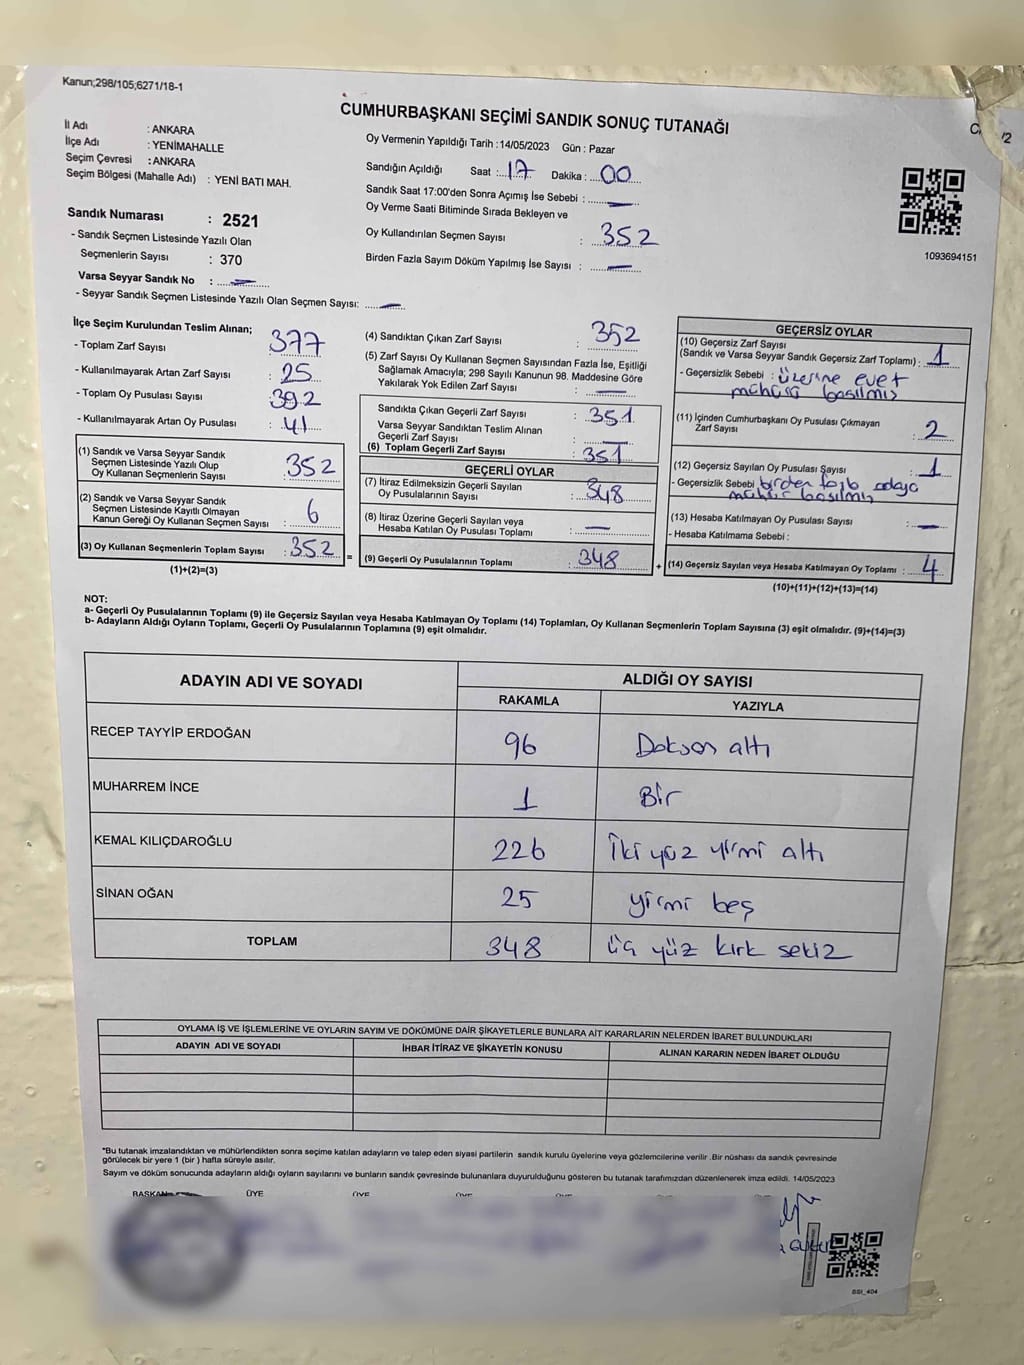 Kanun;298/105;6271/18-1
CUMHURBAŞKANI SEÇİMİ SANDIK SONUÇ TUTANAĞI
/2
İl Adı : ANKARA
İlçe Adı : YENİMAHALLE
Seçim Çevresi : ANKARA
Seçim Bölgesi (Mahalle Adı) : YENİ BATI MAH.
Sandık Numarası : 2521
- Sandık Seçmen Listesinde Yazılı Olan
Seçmenlerin Sayısı : 370
Varsa Seyyar Sandık No : —
- Seyyar Sandık Seçmen Listesinde Yazılı Olan Seçmen Sayısı: —
Oy Vermenin Yapıldığı Tarih :14/05/2023 Gün : Pazar
Sandığın Açıldığı Saat : 17 Dakika : 00
Sandık Saat 17:00'den Sonra Açımış İse Sebebi : —
Oy Verme Saati Bitiminde Sırada Bekleyen ve
Oy Kullandırılan Seçmen Sayısı : 352
Birden Fazla Sayım Döküm Yapılmış İse Sayısı : —
1093694151
İlçe Seçim Kurulundan Teslim Alınan;
- Toplam Zarf Sayısı : 377
- Kullanılmayarak Artan Zarf Sayısı : 25
- Toplam Oy Pusulası Sayısı : 392
- Kullanılmayarak Artan Oy Pusulası : 41
(1) Sandık ve Varsa Seyyar Sandık
Seçmen Listesinde Yazılı Olup
Oy Kullanan Seçmenlerin Sayısı : 352
(2) Sandık ve Varsa Seyyar Sandık
Seçmen Listesinde Kayıtlı Olmayan
Kanun Gereği Oy Kullanan Seçmen Sayısı : 6
(3) Oy Kullanan Seçmenlerin Toplam Sayısı : 352
(1)+(2)=(3)
=
(4) Sandıktan Çıkan Zarf Sayısı : 352
(5) Zarf Sayısı Oy Kullanan Seçmen Sayısından Fazla İse, Eşitliği
Sağlamak Amacıyla; 298 Sayılı Kanunun 98. Maddesine Göre
Yakılarak Yok Edilen Zarf Sayısı : —
Sandıkta Çıkan Geçerli Zarf Sayısı : 351
Varsa Seyyar Sandıktan Teslim Alınan
Geçerli Zarf Sayısı : —
(6) Toplam Geçerli Zarf Sayısı : 351
GEÇERLİ OYLAR
(7) İtiraz Edilmeksizin Geçerli Sayılan
Oy Pusulalarının Sayısı : 348
(8) İtiraz Üzerine Geçerli Sayılan veya
Hesaba Katılan Oy Pusulası Toplamı : —
(9) Geçerli Oy Pusulalarının Toplamı : 348
+
GEÇERSİZ OYLAR
(10) Geçersiz Zarf Sayısı
(Sandık ve Varsa Seyyar Sandık Geçersiz Zarf Toplamı) : 1
- Geçersizlik Sebebi : üzerine evet
mührü basılmış
(11) İçinden Cumhurbaşkanı Oy Pusulası Çıkmayan
Zarf Sayısı : 2
(12) Geçersiz Sayılan Oy Pusulası Sayısı : 1
- Geçersizlik Sebebi birden fazla adaya
mühür basılmış
(13) Hesaba Katılmayan Oy Pusulası Sayısı : —
- Hesaba Katılmama Sebebi :
(14) Geçersiz Sayılan veya Hesaba Katılmayan Oy Toplamı : 4
(10)+(11)+(12)+(13)=(14)
NOT:
a- Geçerli Oy Pusulalarının Toplamı (9) ile Geçersiz Sayılan veya Hesaba Katılmayan Oy Toplamı (14) Toplamları, Oy Kullanan Seçmenlerin Toplam Sayısına (3) eşit olmalıdır. (9)+(14)=(3)
b- Adayların Aldığı Oyların Toplamı, Geçerli Oy Pusulalarının Toplamına (9) eşit olmalıdır.
ADAYIN ADI VE SOYADI
ALDIĞI OY SAYISI
RAKAMLA YAZIYLA
RECEP TAYYİP ERDOĞAN 96 Doksan altı
MUHARREM İNCE 1 Bir
KEMAL KILIÇDAROĞLU 226 İki yüz yirmi altı
SİNAN OĞAN 25 yirmi beş
TOPLAM 348 üç yüz kırk sekiz
OYLAMA İŞ VE İŞLEMLERİNE VE OYLARIN SAYIM VE DÖKÜMÜNE DAİR ŞİKAYETLERLE BUNLARA AİT KARARLARIN NELERDEN İBARET BULUNDUKLARI
ADAYIN ADI VE SOYADI İHBAR İTİRAZ VE ŞİKAYETİN KONUSU ALINAN KARARIN NEDEN İBARET OLDUĞU
*Bu tutanak imzalandıktan ve mühürlendikten sonra seçime katılan adayların ve talep eden siyasi partilerin sandık kurulu üyelerine veya gözlemcilerine verilir .Bir nüshası da sandık çevresinde
görülecek bir yere 1 (bir ) hafta süreyle asılır.
Sayım ve döküm sonucunda adayların aldığı oyların sayılarını ve bunların sandık çevresinde bulunanlara duyurulduğunu gösteren bu tutanak tarafımızdan düzenlenerek imza edildi. 14/05/2023
BAŞKAN ÜYE ÜYE ÜYE ÜYE
SSI_404